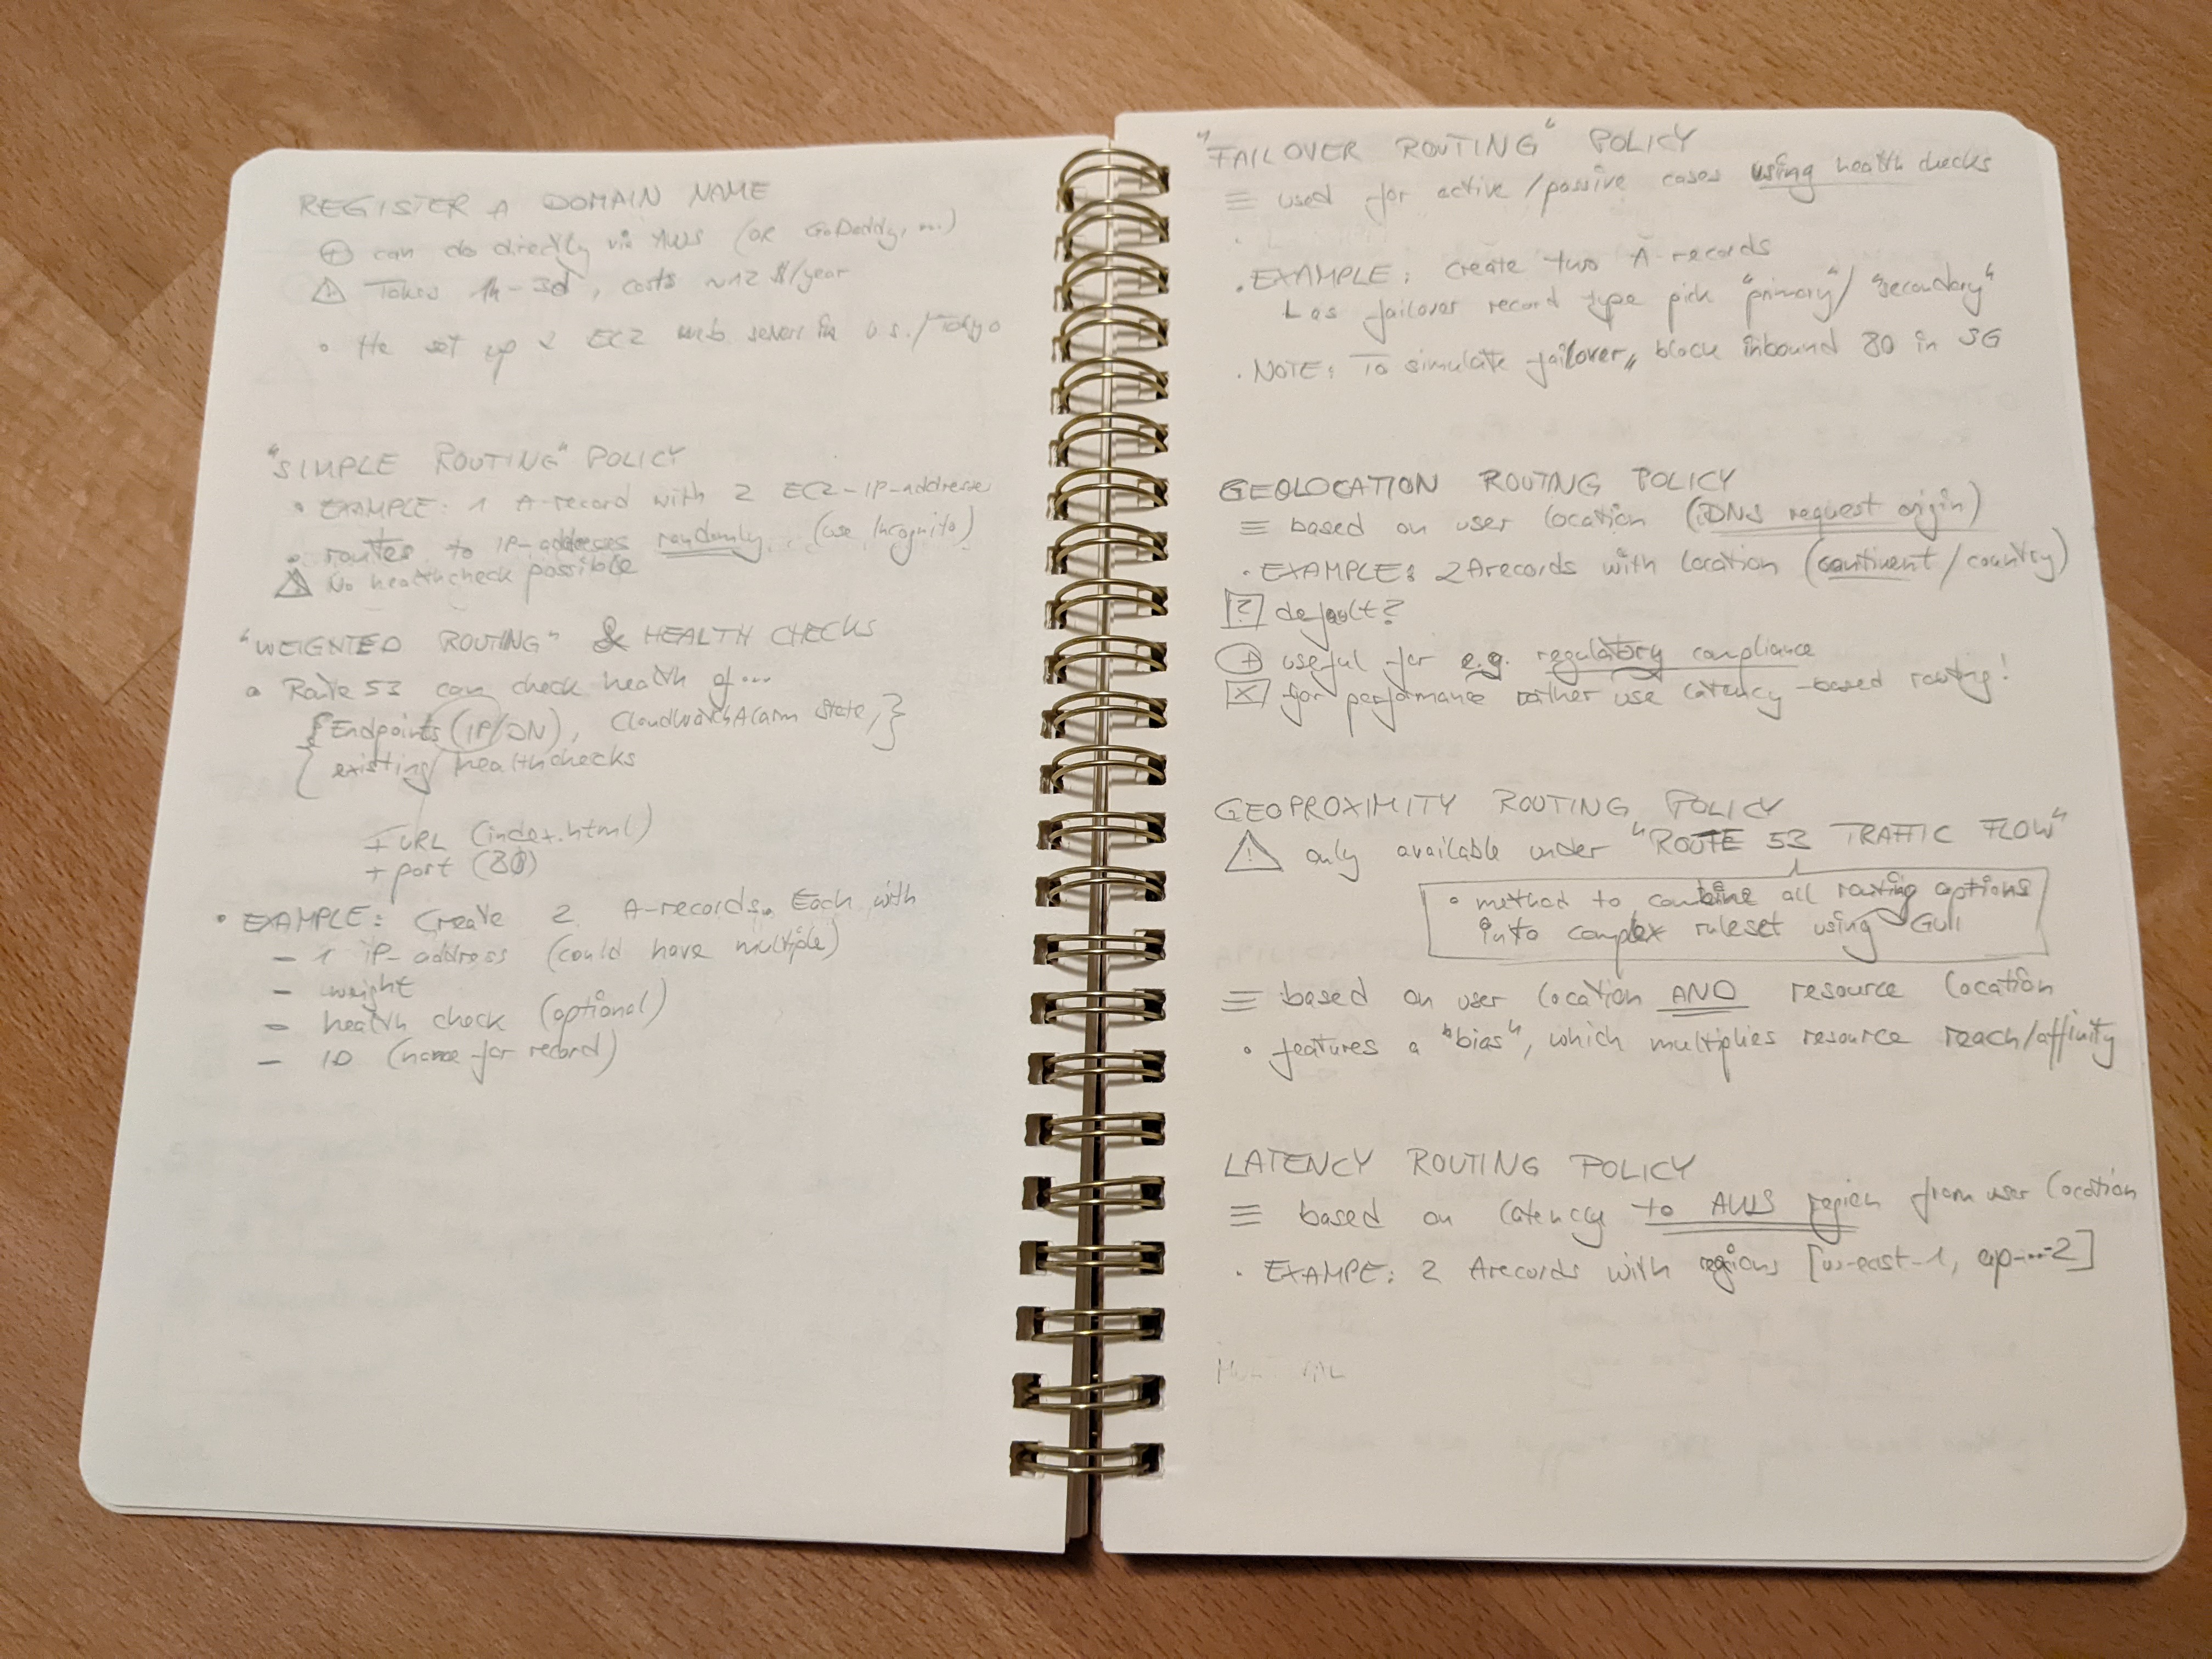 REGISTER A DOMAIN NAME
⊕ can do directly via AWS (OR GoDaddy, ...)
⚠ Takes 1h-3d, costs ~12 $/year
• He set up 2 EC2 web server in US./Tokyo
"SIMPLE ROUTING" POLICY
• EXAMPLE: 1 A-record with 2 EC2-IP-addresses
• routes to IP-addresses randomly. (use Incognito)
⚠ No healthcheck possible
"WEIGHTED ROUTING" & HEALTH CHECKS
• Route 53 can check health of...
{Endpoints (IP/DN), CloudWatchAlarm state,}
{ existing healthchecks
+ URL (index.html)
+ port (80)
• EXAMPLE: Create 2 A-records. Each with
- 1 IP-address (could have multiple)
- weight
- health check (optional)
- ID (name for record)
"FAILOVER ROUTING" POLICY
≡ used for active/passive cases using health checks
• EXAMPLE: Create two A-records
L as failover record type pick "primary"/"secondary"
• NOTE: To simulate failover, block inbound 80 in SG
GEOLOCATION ROUTING POLICY
≡ based on user location (DNS request origin)
• EXAMPLE: 2 Arecords with location (continent/country)
[?] default?
⊕ useful for e.g. regulatory compliance
[X] for performance rather use latency-based routing!
GEOPROXIMITY ROUTING POLICY
⚠ only available under "ROUTE 53 TRAFFIC FLOW"
• method to combine all routing options
into complex ruleset using GUI
≡ based on user location AND resource location
• features a "bias", which multiplies resource reach/affinity
LATENCY ROUTING POLICY
≡ based on latency to AWS region from user location
• EXAMPE: 2 Arecords with regions [us-east-1, ap-...-2]